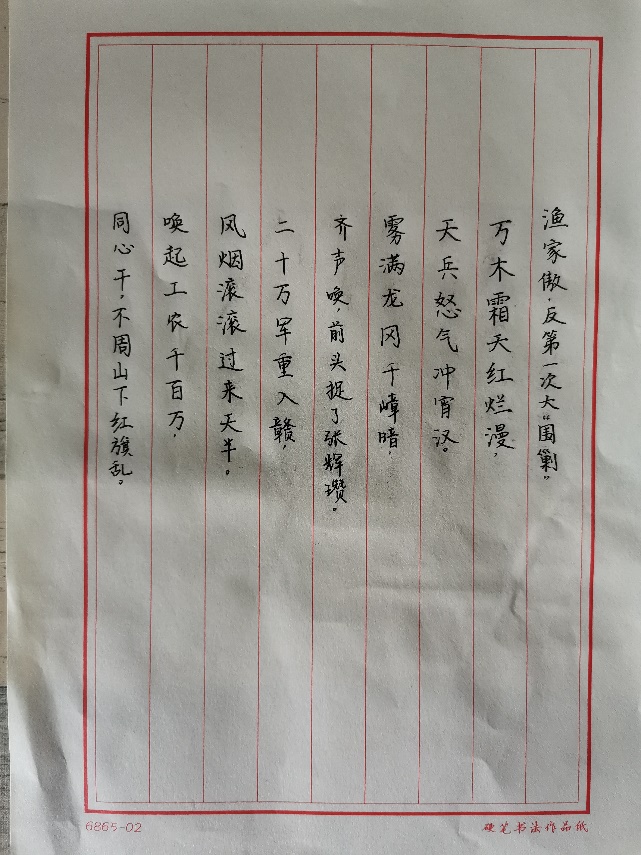 渔家傲·反第一次大"围剿"
万木霜天红烂漫，
天兵怒气冲霄汉。
雾满龙冈千嶂暗，
齐声唤，前头捉了张辉瓒。
二十万军重入赣，
风烟滚滚来天半。
唤起工农千百万，
同心干，不周山下红旗乱。
6865-02
硬笔书法作品纸